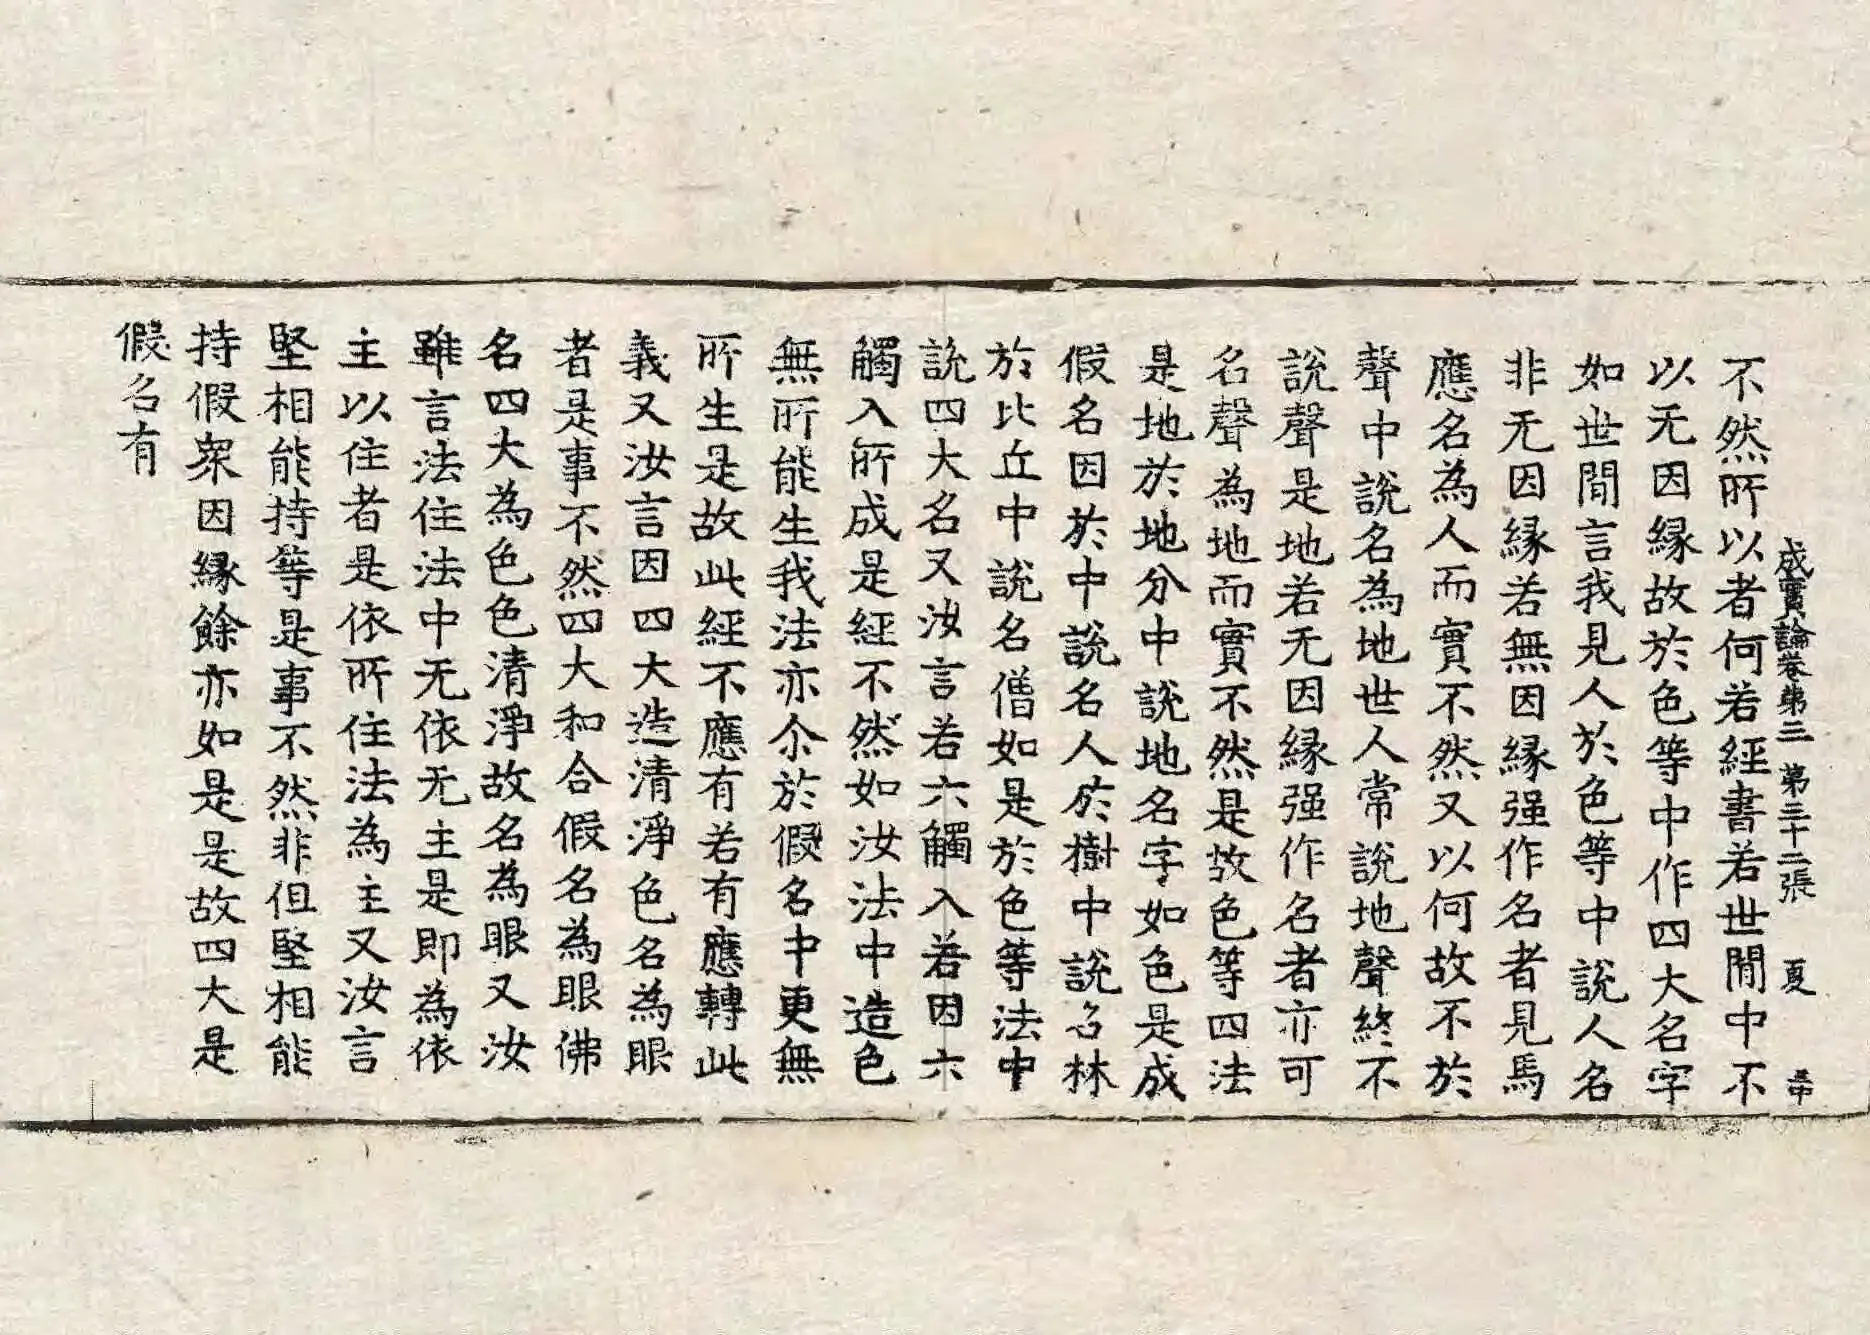 成實論卷第三 第三十二張 夏
不然所以者何若經書若世間中不
以无因縁故於色等中作四大名字
如世間言我見人於色等中說人名
非无因縁若無因縁强作名者見馬
應名為人而實不然又以何故不於
聲中說名為地世人常說地聲終不
說聲是地若无因縁强作名者亦可
名聲為地而實不然是故色等四法
是地於地分中說地名字如色是成
假名因於中說名人於樹中說名林
於比丘中說名僧如是於色等法中
說四大名又汝言若六觸入若因六
觸入所成是經不然如汝法中造色
無所能生我法亦尒於假名中更無
所生是故此經不應有若有應轉此
義又汝言因四大造清淨色名為眼
者是事不然四大和合假名為眼佛
名四大為色色清淨故名為眼又汝
雖言法住法中无依无主是即為依
主以住者是依所住法為主又汝言
堅相能持等是事不然非但堅相能
持假衆因縁餘亦如是是故四大是
假名有